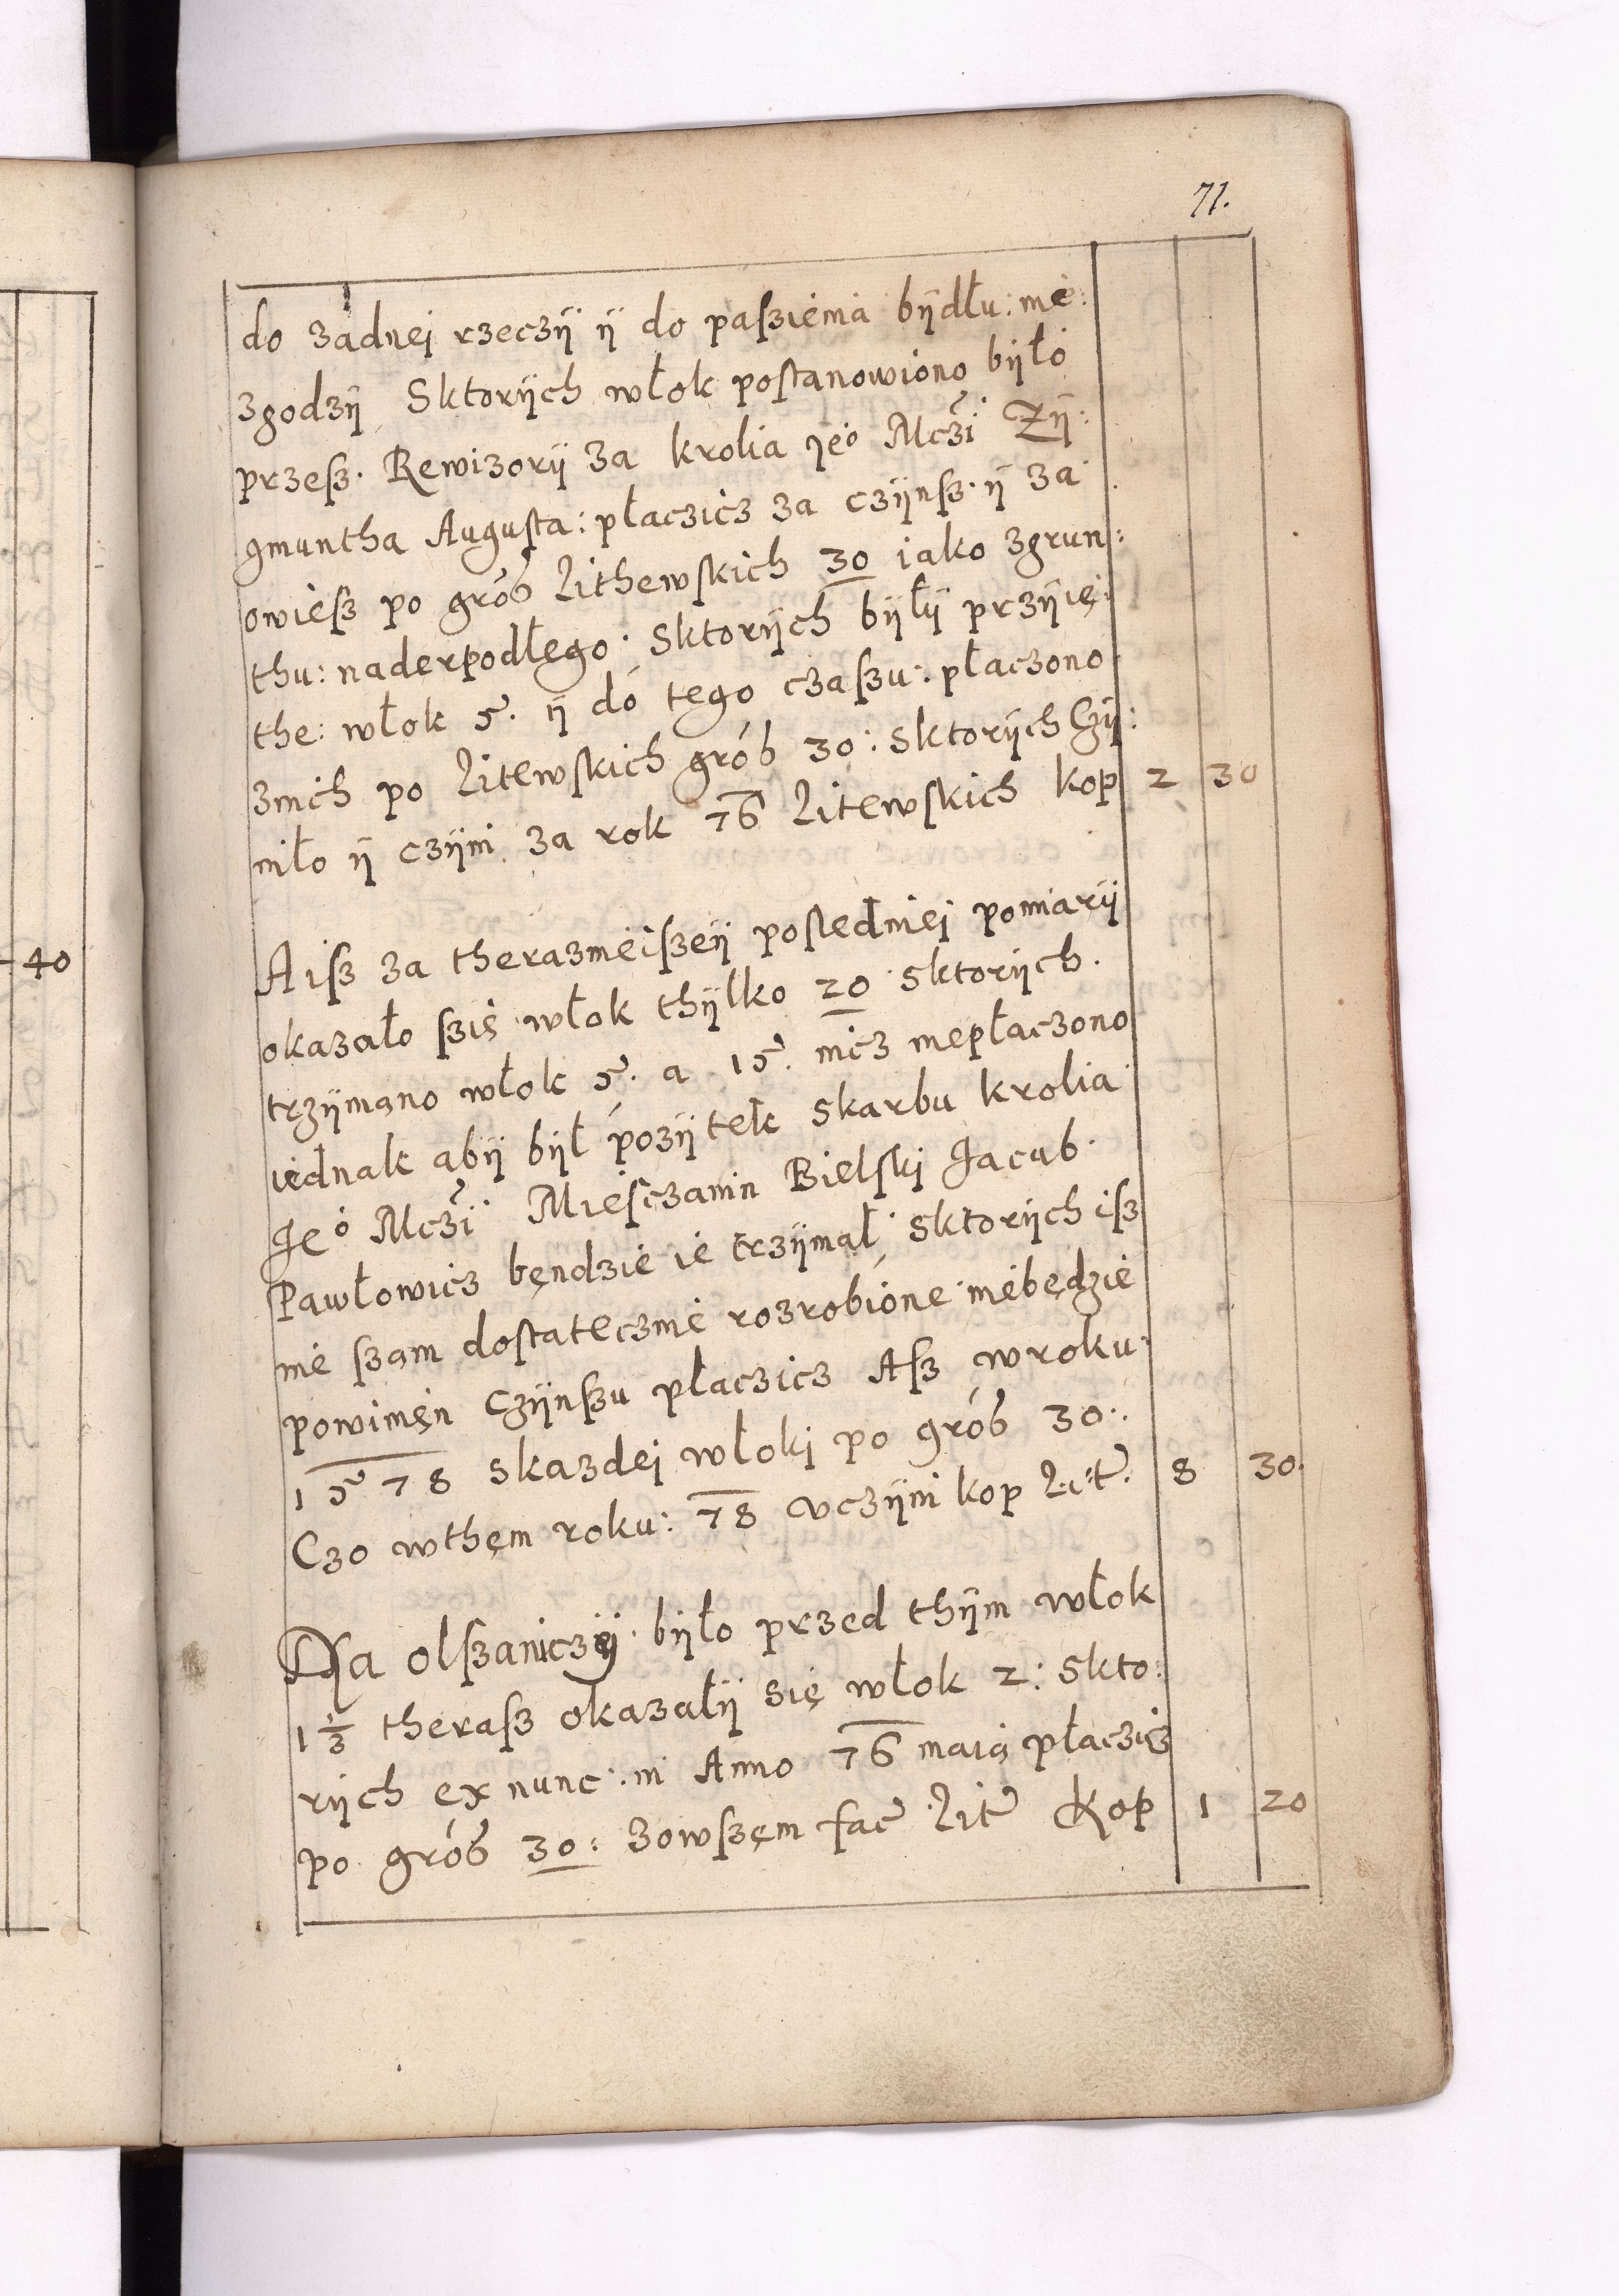 71.
do żadnej rzeczÿ ÿ do paszienia bÿdłu: nie:
zgodzÿ Sktorÿch włok postanowiono bÿło
przesz. Rewizorÿ za krolia jeo Mczi Zÿ:
gmuntha Augusta: płaczicz za czÿnsz. ÿ za
owiesz po groß Lithewskich 30 iako zgrun:
thu: naderpodłego: Sktorÿch bÿłÿ przÿię:
the: włok 5. ÿ do tego czaszu: płaczono
znich po Litewskich groß 30: sktorÿch Czÿ:
niło ÿ czÿni za rok 76 Litewskich kop 2 30
Aisz za therazneiszeÿ posledniej pomiarÿ
okazało szię włok thÿlko 20 sktorÿch.
trzÿmano włok 5. a 15. nicz niepłaczono
iednak abÿ bÿł pożÿtek skarbu krolia
Jeo Mczi Miesczanin Bielski Jacub
Pawłowicz bęndzie ie trzÿmał sktorÿch isz
nie szam dostatecznie rozrobione niebędzie
powinięn Czÿnszu płaczicz Asz wroku
1578 skazdej włoki po groß 30.
Czo wthęm roku: 78 uczÿni kop Lit. 8 30.
Na olszaniczÿ bÿło przed thÿm włok
1 1/3 therasz okazałÿ się włok 2: skto:
rÿch ex nunc in Anno 76 maią płaczicz
po groß 30: zowszęm fac Lit Kop 1 20
40